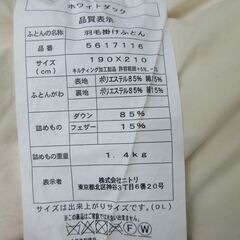 ホワイトダック
品質表示
ふとんの名称 羽毛掛けふとん
品番 5617116
サイズ(cm) 190X210
キルティング加工製品 許容範囲
ふとんがわ 表地 ポリエステル85% 綿15%
裏地 ポリエステル85% 綿15%
詰めもの ダウン 85%
フェザー 15%
詰めもの重量 1.4kg
表示者 株式会社ニトリ
東京都北区神谷3丁目6番20号
サイズは出来上がりサイズです。(DL)
※この製品はご家庭ではお洗いになれません。